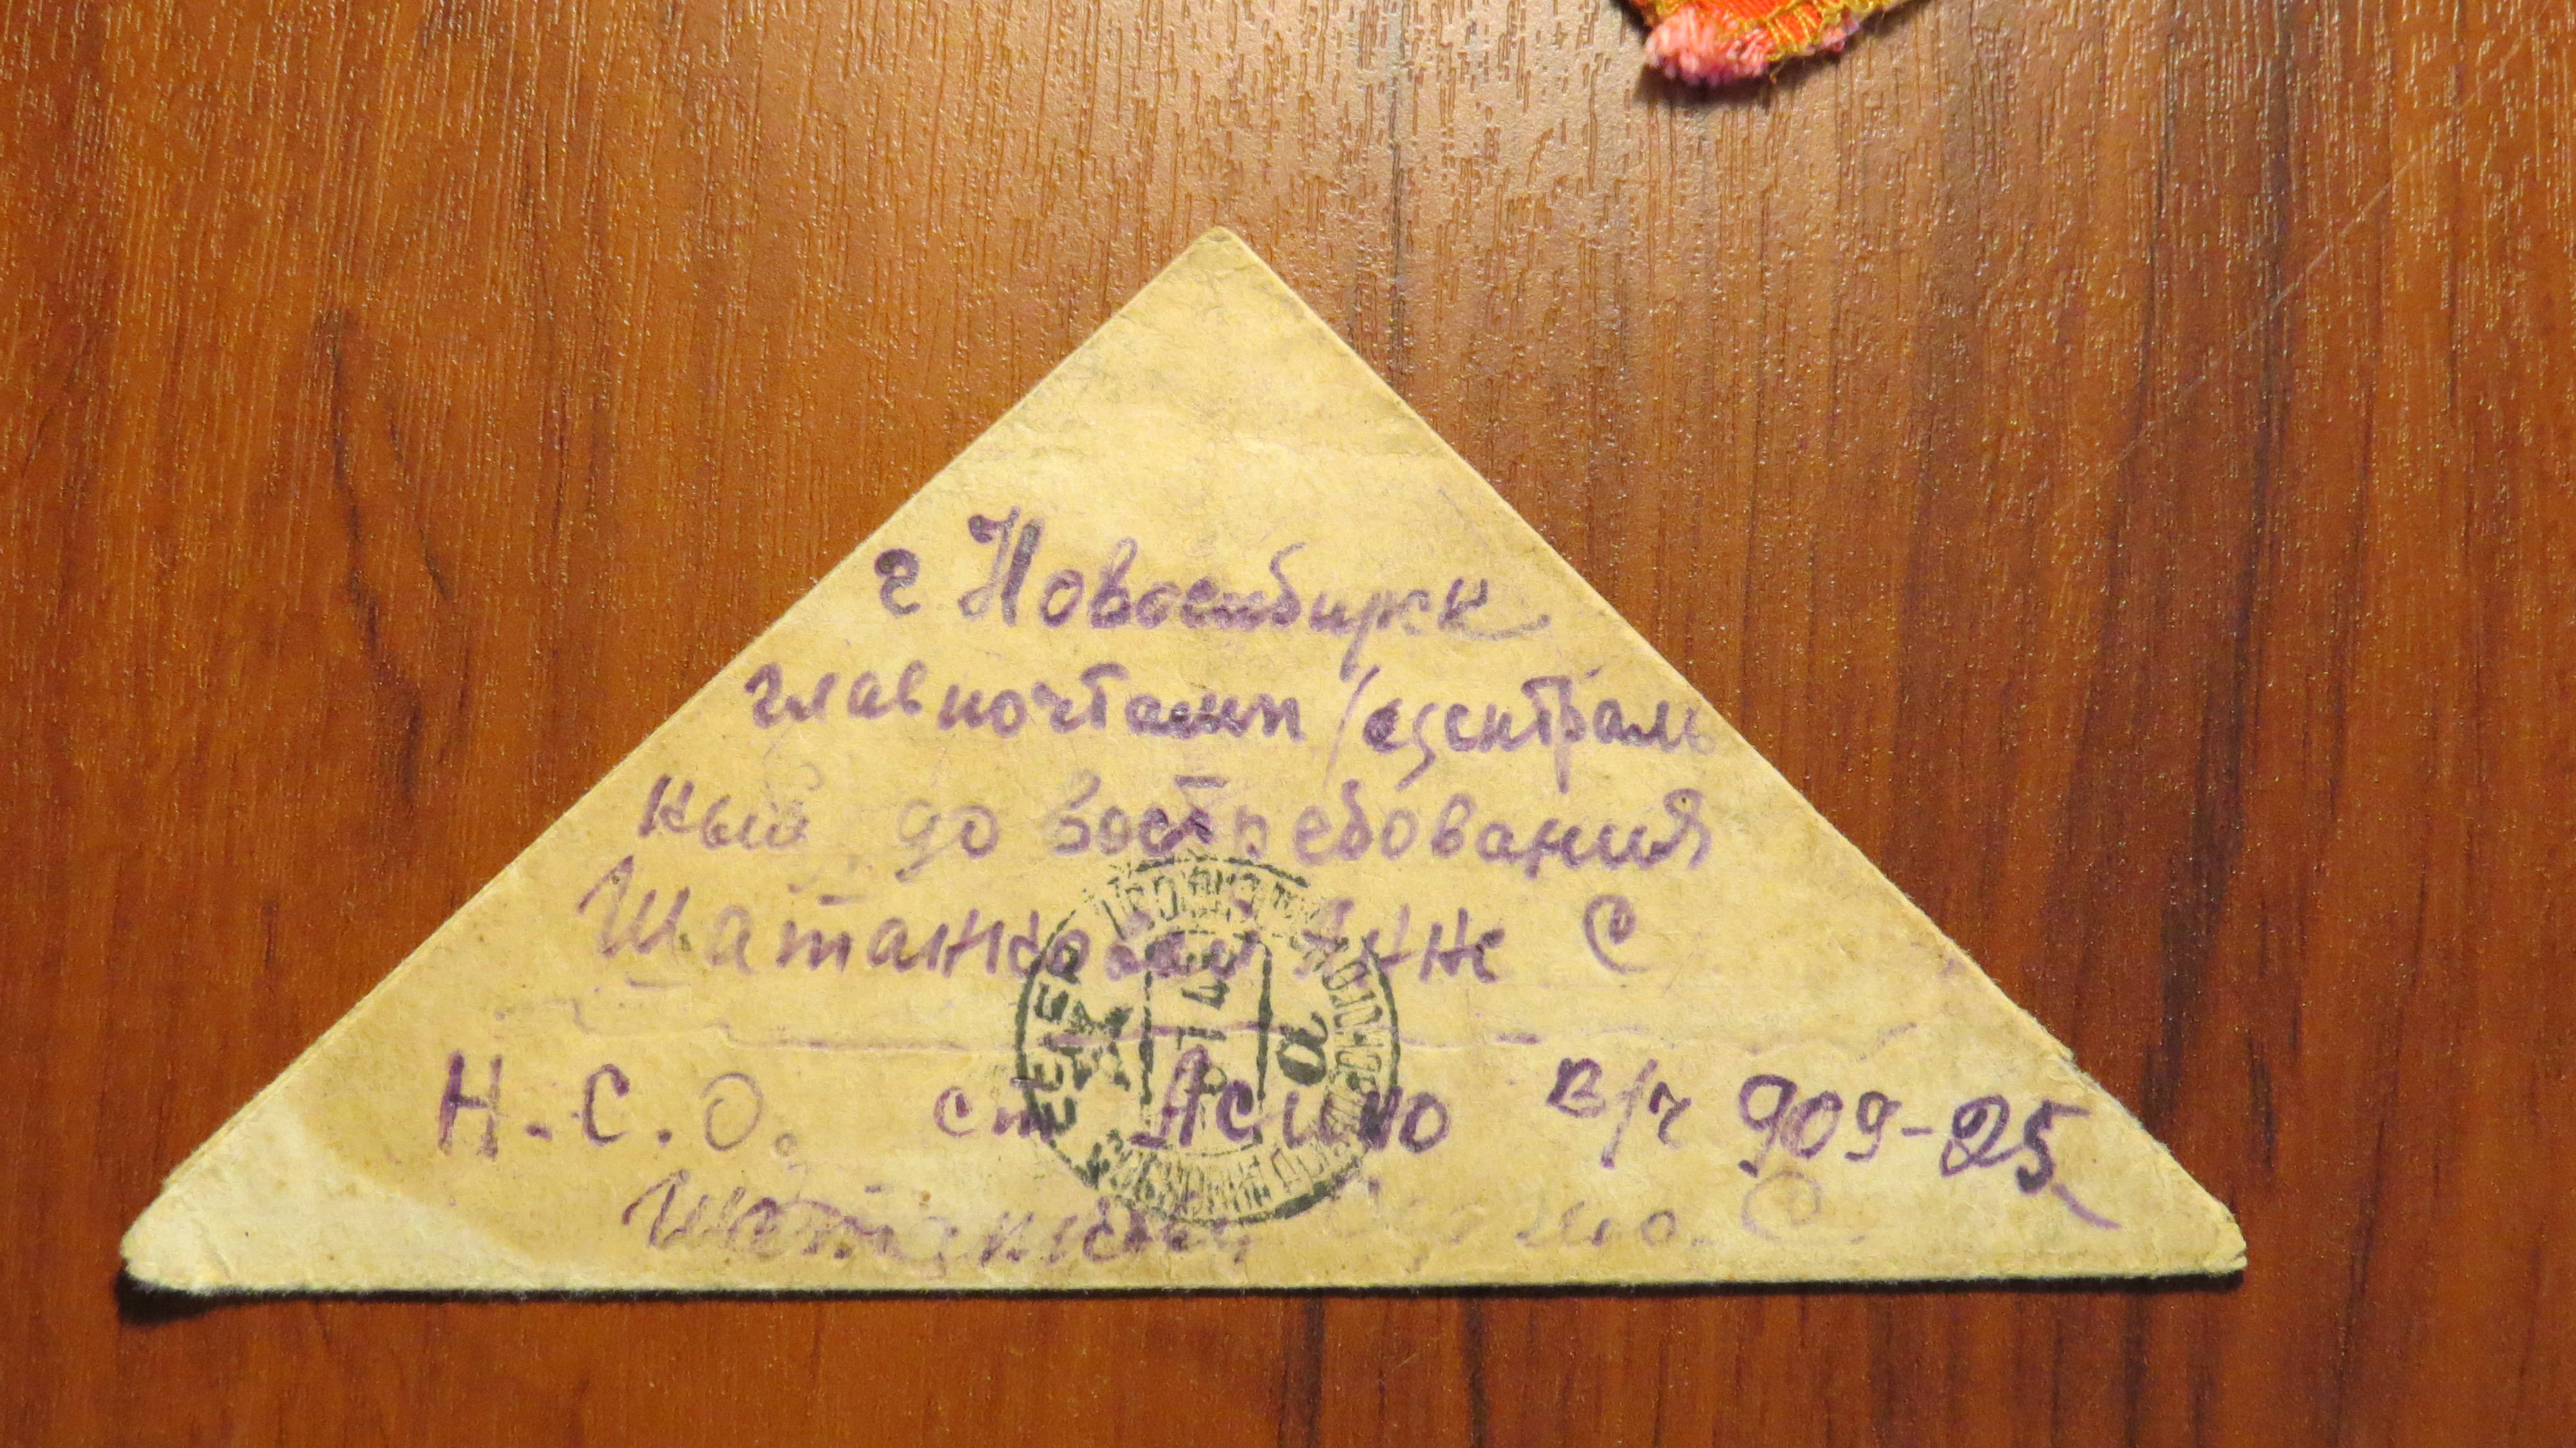 г Новосибирск
главпочтамп /централь
ный до востребования
Шатанковой Анне С
Н.С.О. ст Асино в/ч 909-25
С.